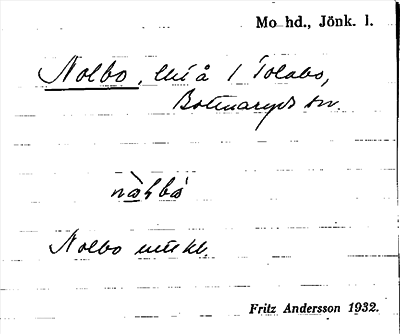 Mo hd., Jönk. l.
Nolbo, litå 1 Tolabo,
Bottnaryds sn.
Nolbo
Fritz Andersson 1932.